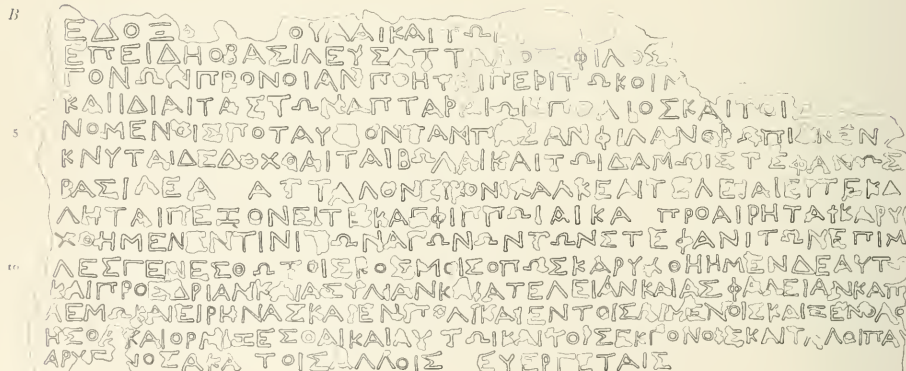 B
ΕΔΟΞ ΟΥΛΑΙΚΑΙΤΩΙ
ΕΠΕΙΔΗΟΒΑΣΙΛΕΥΣΑΤΤΑΛΟΣΦΙΛΟΣ
ΓΟΝΩΝΠΡΟΝΟΙΑΝΠΟΗΤΑΙΠΕΡΙΤΩΚΟΙΝ
ΚΑΙΙΔΙΑΙΤΑΣΤΩΝΑΠΤΑΡΑΙΩΝΠΟΛΙΟΣΚΑΙΤΟΙ
5 ΝΟΜΕΝΟΙΣΠΟΤΑΥΤΟΝΤΑΜΠΑΣΑΝΦΙΛΑΝΘΡΩΠΙΑΝΕΝ
ΚΝΥΤΑΙΔΕΔΟΧΘΑΙΤΑΙΒΩΛΑΙΚΑΙΤΩΙΔΑΜΩΙΣΤΕΦΑΝΩΣ
ΒΑΣΙΛΕΑ ΑΤΤΑΛΟΝΕΙΚΟΝΙΧΑΛΚΕΑΙΤΕΛΕΙΑΙΕΙΤΕΚΑ
ΛΗΤΑΙΠΕΞΟΝΕΙΤΕΚΑΕΦΙΠΠΩΙΑΙΚΑ ΠΡΟΑΙΡΗΤΑΙΚΑΡΥ
ΧΘΗΜΕΝΕΝΤΙΝΙΤΩΝΑΓΩΝΩΝΤΩΝΣΤΕΦΑΝΙΤΩΝΕΠΙΜ
10 ΛΕΣΓΕΝΕΣΘΩΤΟΙΣΚΟΣΜΟΙΣΟΠΩΣΚΑΡΥΧΘΗΗΜΕΝΔΕΑΥΤΩ
ΚΑΙΠΡΟΕΔΡΙΑΝΚΑΙΑΣΥΛΙΑΝΚΑΙΑΤΕΛΕΙΑΝΚΑΙΑΣΦΑΛΕΙΑΝΚΑΙΠ
ΛΕΜΩΚΑΙΕΙΡΗΝΑΣΚΑΙΕΝΠΟΛΙΚΑΙΕΝΤΟΙΣΛΙΜΕΝΟΙΣΚΑΙΞΕΝΟΛΟ
ΗΣΘΑΙ ΚΑΙΟΡΜΙΞΕΣΘΑΙΚΑΙΑΥΤΩΙΚΑΙΤΟΙΣΕΚΓΟΝΟΙΣΚΑΙΤΑΛΟΙΠΑ
ΑΡΥΠ ΝΟΣΑΚΑ ΤΟΙΣΑΛΛΟΙΣ ΕΥΕΡΓΕΤΑΙΣ